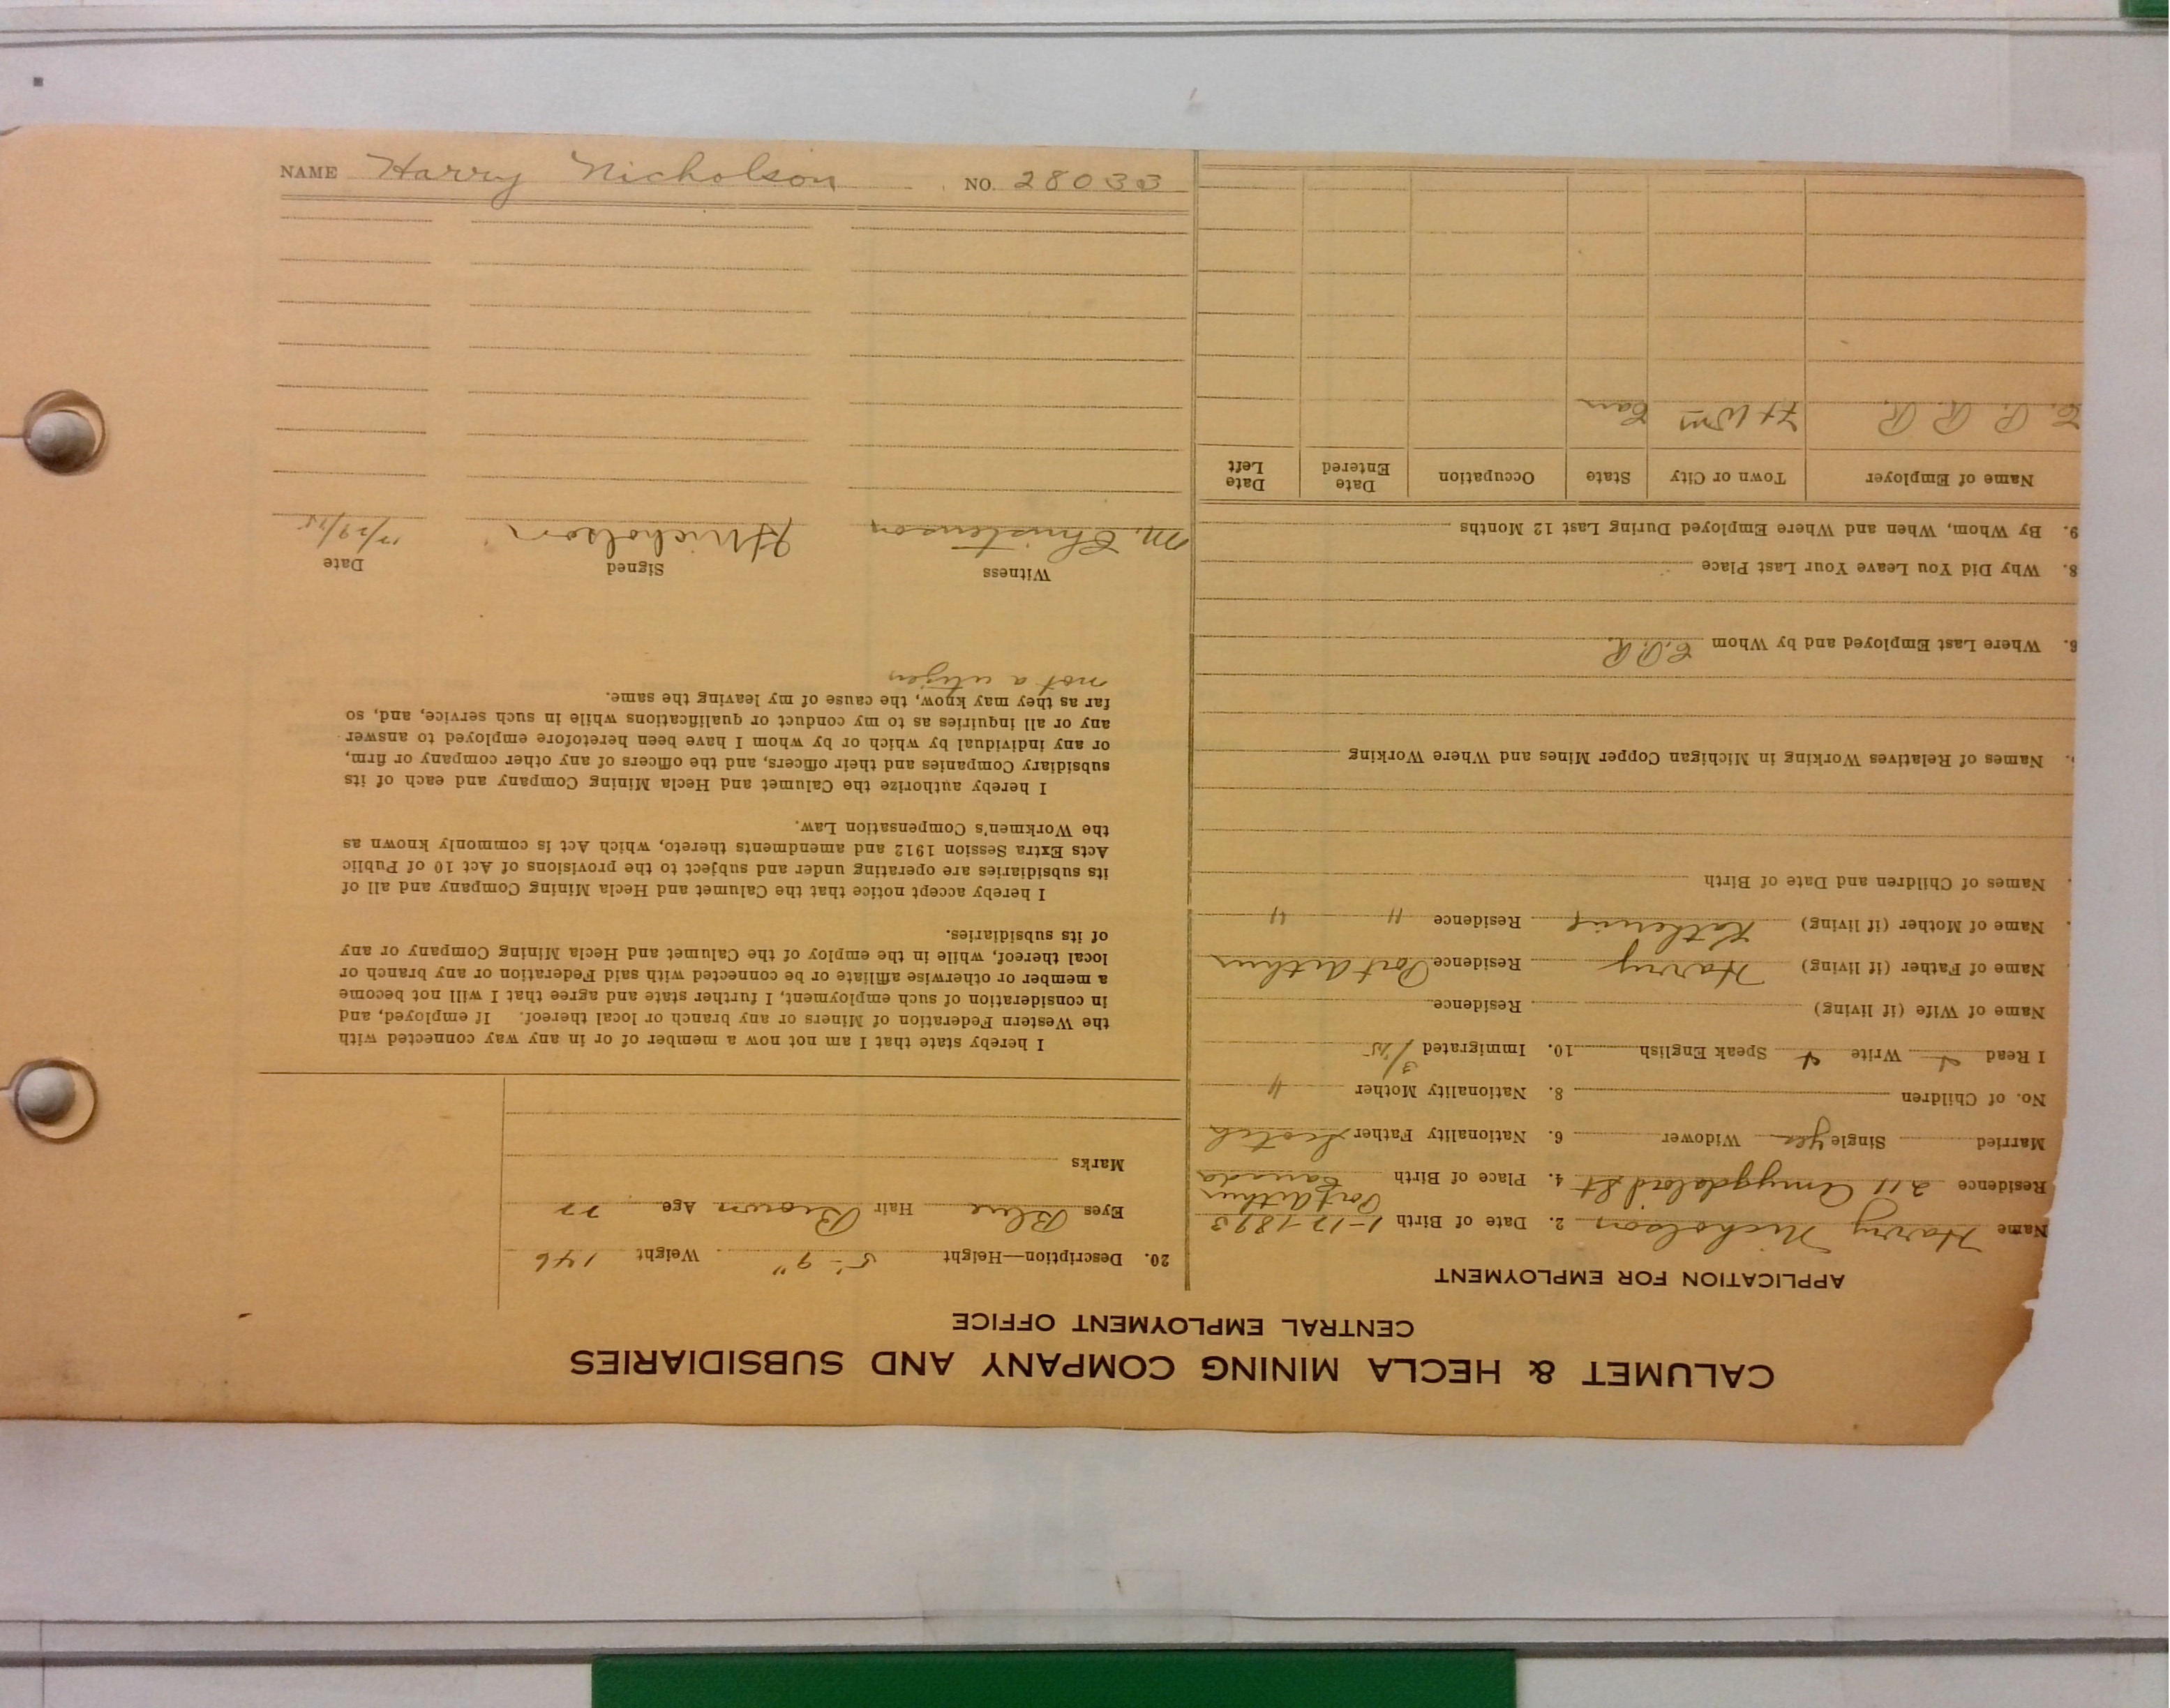 CALUMET & HECLA MINING COMPANY AND SUBSIDIARIES
CENTRAL EMPLOYMENT OFFICE
APPLICATION FOR EMPLOYMENT
Name Harry Nicholson 2. Date of Birth 1-17-1893
Residence 211 Amygdaloid St 4. Place of Birth Port Arthur Canada
Married Single Yes Widower 6. Nationality Father Scotch
No. of Children 8. Nationality Mother "
I Read Write Speak English 10. Immigrated 3/15
Name of Wife (if living) Residence
Name of Father (if living) Harry Residence Port Arthur
Name of Mother (if living) Katherine Residence " "
Names of Children and Date of Birth
Names of Relatives Working in Michigan Copper Mines and Where Working
6. Where Last Employed and by Whom C.P.R.
8. Why Did You Leave Your Last Place
9. By Whom, When and Where Employed During Last 12 Months
Name of Employer Town or City State Occupation Date Entered Date Left
C. P. R. R. Ft Wm Can
20. Description—Height 5'-9" Weight 146
Eyes Blue Hair Brown Age 22
Marks
I hereby state that I am not now a member of or in any way connected with
the Western Federation of Miners or any branch or local thereof. If employed, and
in consideration of such employment, I further state and agree that I will not become
a member or otherwise affiliate or be connected with said Federation or any branch or
local thereof, while in the employ of the Calumet and Hecla Mining Company or any
of its subsidiaries.
I hereby accept notice that the Calumet and Hecla Mining Company and all of
its subsidiaries are operating under and subject to the provisions of Act 10 of Public
Acts Extra Session 1912 and amendments thereto, which Act is commonly known as
the Workmen's Compensation Law.
I hereby authorize the Calumet and Hecla Mining Company and each of its
subsidiary Companies and their officers, and the officers of any other company or firm,
or any individual by which or by whom I have been heretofore employed to answer
any or all inquiries as to my conduct or qualifications while in such service, and, so
far as they may know, the cause of my leaving the same.
not a citizen
Witness Signed Date
M. Christenson H Nicholson
NAME Harry Nicholson NO. 28033